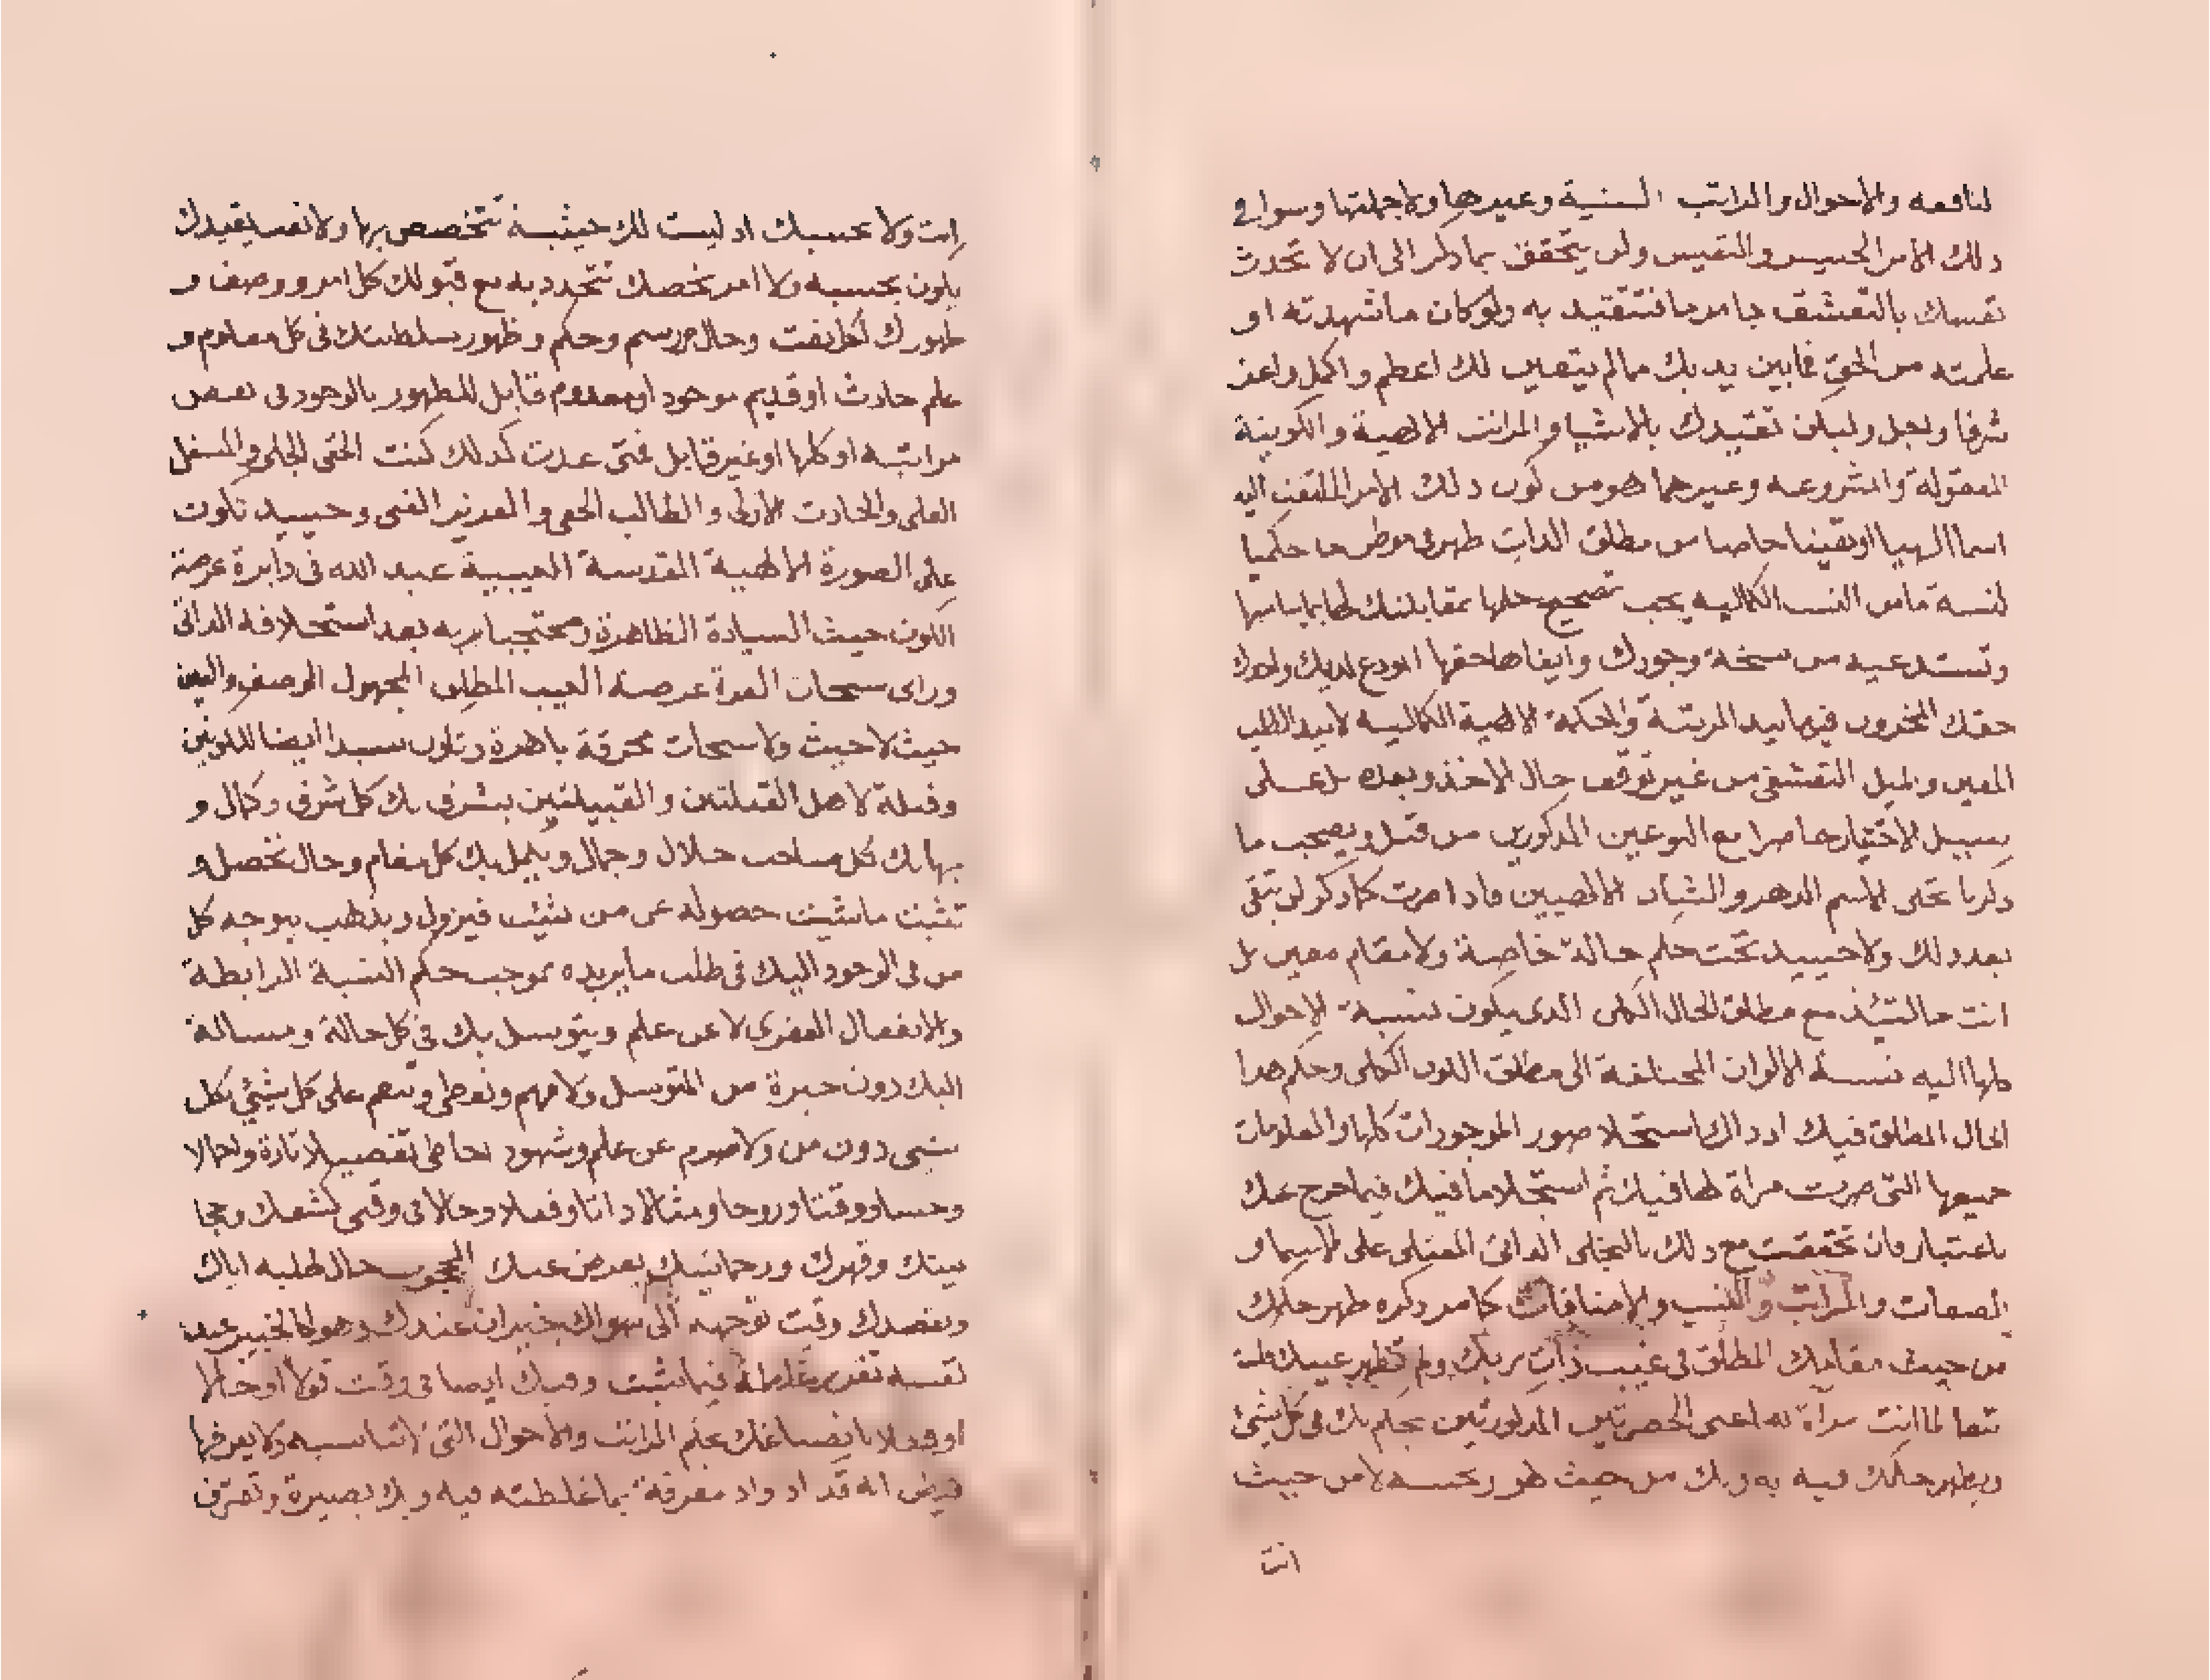 لنافعه والاحوال والمراتب السنية وغيرها ولاجملتها وسوا في
ذلك الامر الخسيس والنفيس ولن يتحقق بما ذكر الى ان لا تحدث
نفسك بالتعشق بامر ما فتتقيد به ولو كان ما شهدته او
علمته من الحق فما بين يديك مما لم يتعين لك اعظم واكمل واعز
شرفا واجل ولسان تقيدك بالاشيا والمراتب الالهية والكونية
المعقولة والمشروعه وغيرهما هو من كون ذلك الامر الملتفت اليه
اسما الهيا او تعينا خاصا من مطلق الذات ظهر في موطن ما حكميا
لنسبة ما من النسب الكماليه يجب تصحيح حكمها بمقابلتك لها بما يناسبها
وتستدعيه من نسخة وجودك وايفاها حقها المودع لديك واخذك
حقك المخزون فيها بيد المرتبة والحكمة الالهية الكماليه لا بيد الطلب
المعين والميل التعشقي من غير توقف حال الاخذ وبعده بل على
سبيل الاختيار حاصرا مع النوعين المذكورين من قبل ويصحب ما
ذكرنا تجلى الاسم الدهر والشان الالهيين فاذا صرت كما ذكر لن تبقى
بعد ذلك ولا حينيد تحت حكم حالة خاصة ولا مقام معين بل
انت حالتئذ مع مطلق الحال الكلى الذي يكون نسبة الاحوال
كلها اليه نسبة الالوان المختلفة الى مطلق اللون الكلى وحكم هذا
الحال المطلق فيك اذ ذاك استجلا صور الموجودات كلها والمعلومات
جميعها التي صرت مراة لها فيك ثم استجلا ما فيك فيما خرج عنك
باعتبار فان تحققت مع ذلك بالتجلى الذاتى المعتلى على الاسما و
الصفات والمراتب والنسب والاضافات كما مر ذكره ظهر حكمك
من حيث مقامك المطلق في غيب ذات ربك ولم تظهر عينك
تبعا لما انت مرآة له اعنى الحضرتين المذكورتين بحكم بك في كل شئ
ويظهر حكمك فيه به وبك من حيث هو وبحسبه لا من حيث
انت
انت ولا بحسبك اذ ليست لك حيثية تتخصص بها ولا نفس يقيدك
يكون بحسبه ولا امر يخصك تتحدد به مع قبولك كل امر ووصف و
ظهورك لكل نعت وحال ورسم وحكم وظهور سلطنتك في كل معلوم و
علم حادث او قديم موجود او معدوم قابل للظهور بالوجود في بعض
مراتبه او كلها او غير قابل فمتى عدت كذلك كنت الخفى الجلى والمسفل
العلى والحادث الازلى والطالب الحفى والعزيز الغنى وحينيد تكون
على الصورة الالهية المقدسة الغيبية عبد الله في دايرة عرصة
الكون حيث السيادة الظاهرة ومحتجبا بربه بعد استخلافه الذاتى
ورأى سبحات العزة عرصة الغيب المطلق المجهول الوصف والعين
حيث لا حيث ولا سبحات محرقة باهرة وتكون سيدا ايضا للكونين
وقبلة لاهل القبلتين والقبيلتين يشرف بك كل شرف وكمال و
بها بك كل صاحب جلال وجمال ويكمل بك كل مقام وحال تحصل و
تثبت ما شيت حصوله عن من شيت فيزول ويذهب بتوجه كل
من في الوجود اليك في طلب ما يريده بموجب حكم النسبة الرابطة
والانفعال الفقرى لا عن علم ويتوسل بك في كل حالة ومسالة
اليك دون خبرة من المتوسل ولا فهم وتعطى وتنعم على كل شئ بكل
شى دون من ولا صرم عن علم وشهود احاطى تفصيلا تارة واجمالا
وحسا ووقتا وروحا ومثالا وذاتا وفعلا وحالا في وقتى كشفك وحجا
بيتك وقهرك ورحمانيتك يعرض عنك المحجوب حال طلبه اياك
ويقصدك وقت توجهه الى سواك يخبر ان عندك وهو كالخبير عند
نفسه تقرر غلطه فيما شيت وفيك ايضا في وقت قولا او حالا
او فعلا باتصافك بحكم المراتب والاحوال التى لا تناسبه ولا يعرفها
فيظن انه قد ازداد معرفة بما غلطته فيه وبك بصيرة وتعرف